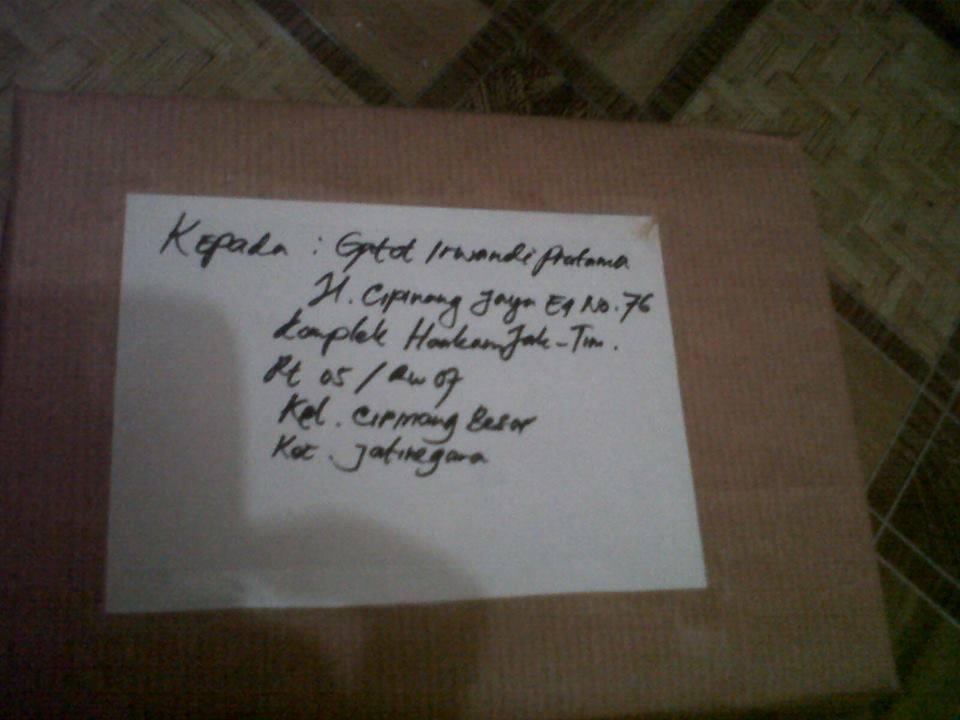 Kepada : Gatot Irwandi Pratama
Jl. Cipinang Jaya No. 76
Komplek Hankam Jak-Tim.
Rt 05 / Rw 07
Kel. Cipinang Besar
Kec. Jatinegara